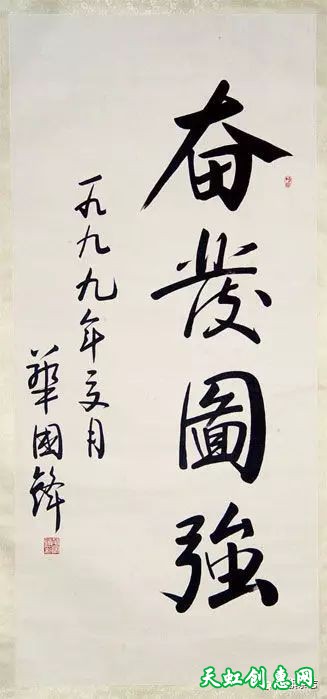 奋發圖強
一九九九年月
華國鋒
天虹创惠网